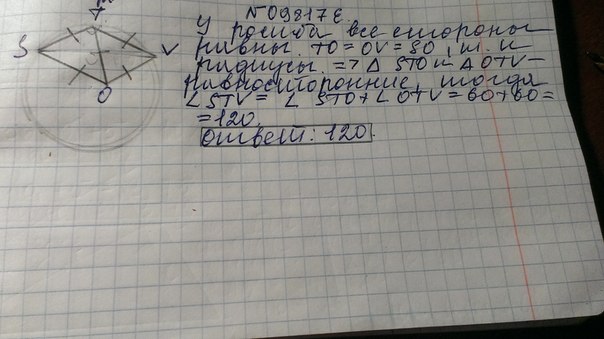 N09817E.
T
S
V
O
У ромба все стороны
равны. TO = OV = SO, т. к
радиусы. => Δ STO и Δ OTV –
равносторонние, тогда
∠ STV = ∠ STO + ∠ OTV = 60 + 60 =
= 120.
Ответ: 120.